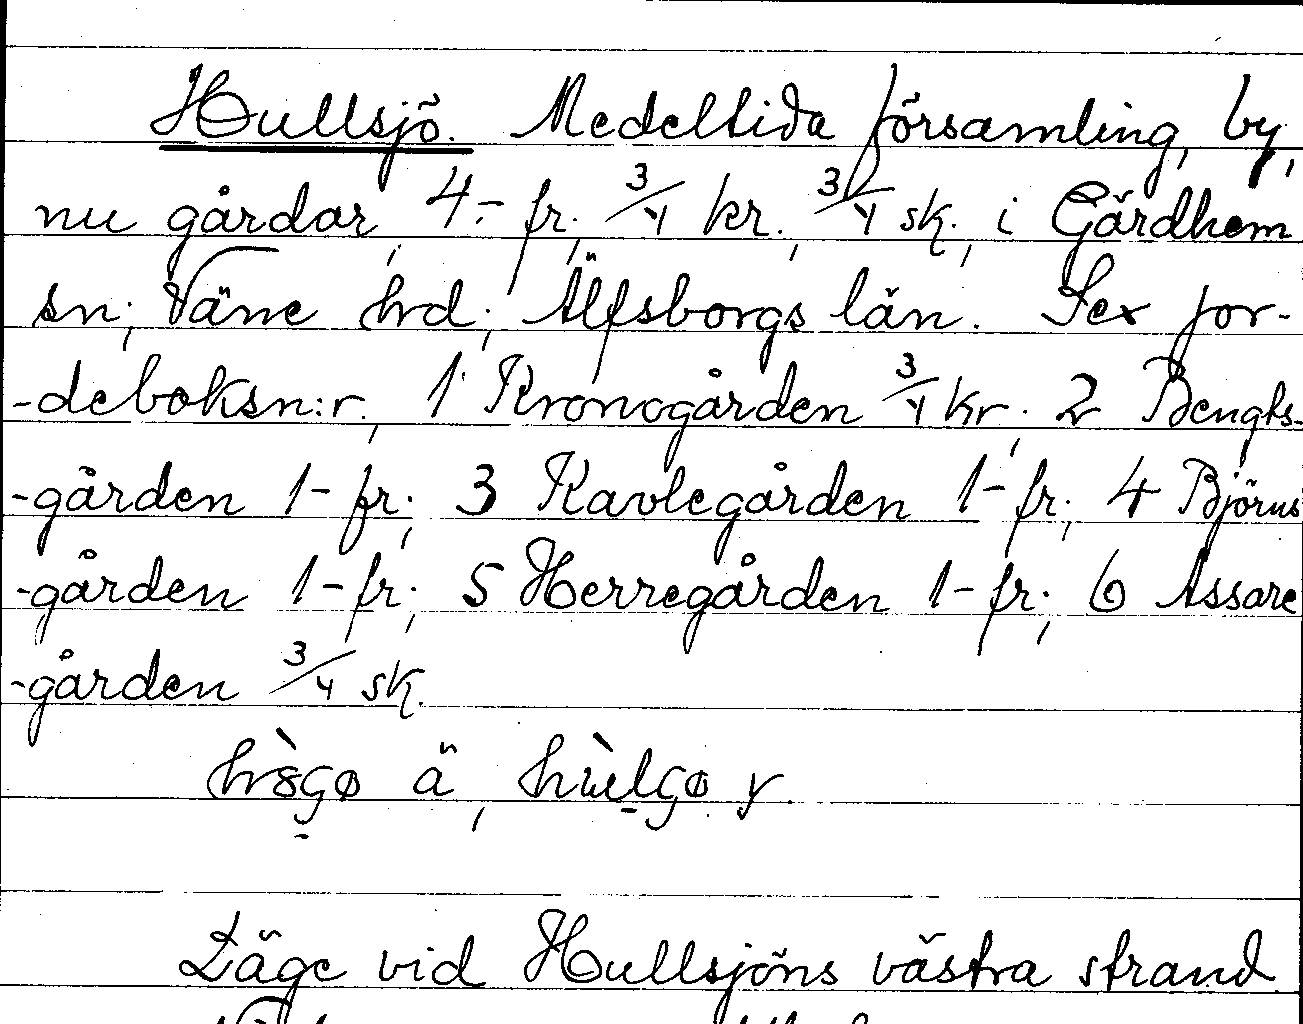 Hullsjö. Medeltida församling, by,
nu gårdar, 4.- fr, 3/4 kr., 3/4 sk., i Gärdhem
sn, Väne hrd, Älfsborgs län. Sex jor-
-deboksn:r, 1 Kronogården 3/4 kr, 2 Bengts-
-gården 1- fr, 3 Kavlegården 1- fr, 4 Björns
-gården 1- fr, 5 Herregården 1- fr, 6 Assare
-gården 3/4 sk.
ä, y.
Läge vid Hullsjöns västra strand